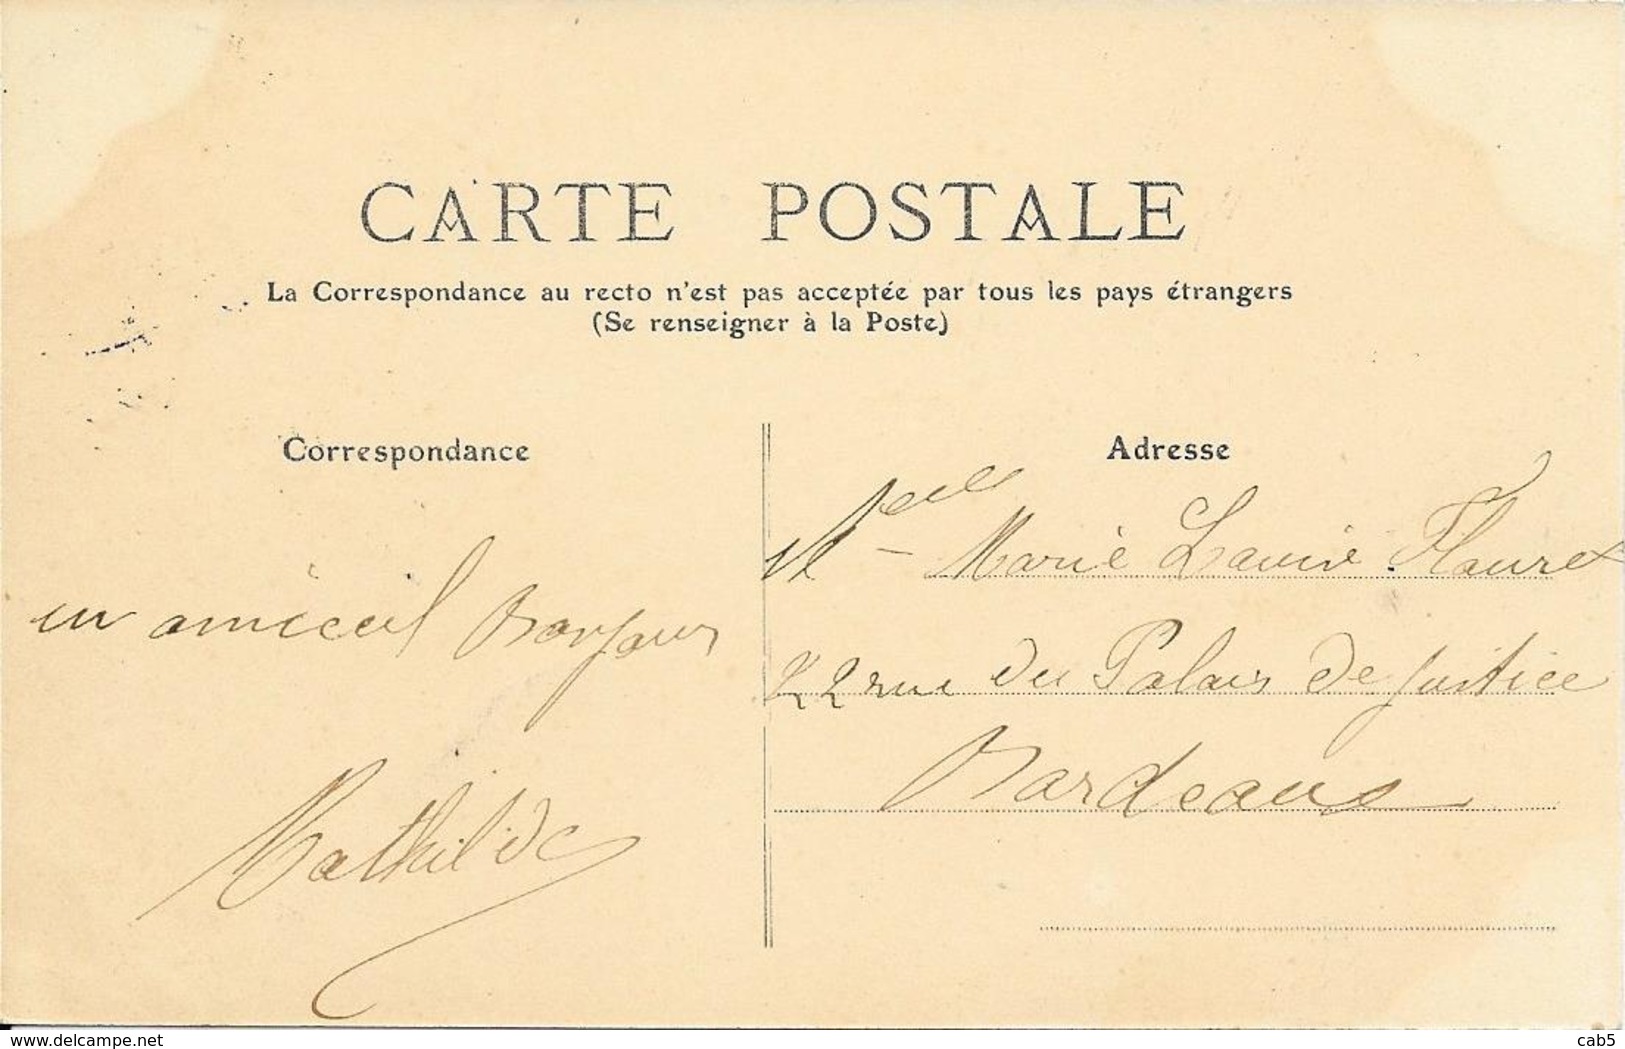 CARTE POSTALE
La Correspondance au recto n'est pas acceptée par tous les pays étrangers
(Se renseigner à la Poste)
Correspondance
un amiceul Bonjour
Mathilde
Adresse
Melle Marie Louise Flouret
22 rue du Palais de justice
Bordeaux
www.delcampe.net
cab5